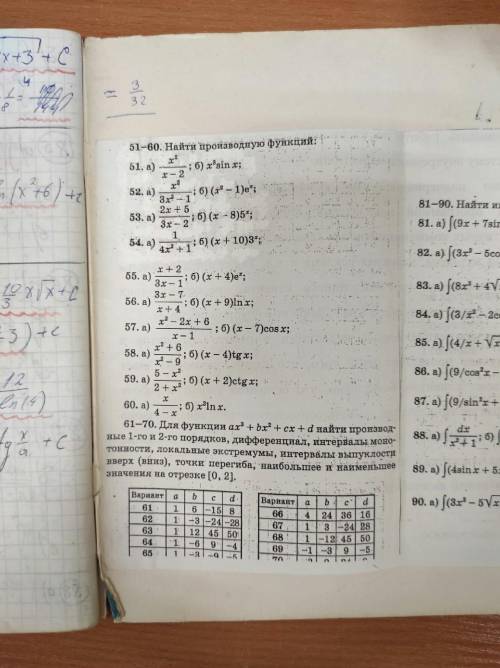 x+3 + C
= 3/32
(x²+6) + c
x√x + C
3) + C
12
ln(4)
+ C
51–60. Найти производную функций:
51. а) x²/(x − 2); б) x³sin x;
52. а) x²/(3x² − 1); б) (x² − 1)eˣ;
53. а) (2x + 5)/(3x − 2); б) (x − 8)5ˣ;
54. а) 1/(4x² + 1); б) (x + 10)3ˣ;
55. а) (x + 2)/(3x − 1); б) (x + 4)eˣ;
56. а) (3x − 7)/(x + 4); б) (x + 9)ln x;
57. а) (x² − 2x + 6)/(x − 1); б) (x − 7)cos x;
58. а) (x² + 6)/(x² − 9); б) (x − 4)tg x;
59. а) (5 − x²)/(2 + x²); б) (x + 2)ctg x;
60. а) x/(4 − x); б) x²ln x.
61–70. Для функции ax³ + bx² + cx + d найти производ-
ные 1-го и 2-го порядков, дифференциал, интервалы моно-
тонности, локальные экстремумы, интервалы выпуклости
вверх (вниз), точки перегиба, наибольшее и наименьшее
значения на отрезке [0, 2].
Вариант a b c d
61 1 6 −15 8
62 1 −3 −24 −28
63 1 12 45 50
64 1 −6 9 −4
65 1 −3 −9 −5
Вариант a b c d
66 4 24 36 16
67 1 3 −24 28
68 1 −12 45 50
69 −1 −3 9 −5
70
81–90. Найти
81. а) ∫(9x + 7sin
82. а) ∫(3x² − 5co
83. а) ∫(8x² + 4√
84. а) ∫(3/x² − 2co
85. а) ∫(4/x + √x
86. а) ∫(9/cos²x −
87. а) ∫(9/sin²x +
88. а) ∫dx/(x² + 1); б) ∫
89. а) ∫(4sin x + 5
90. а) ∫(3x² − 5√x